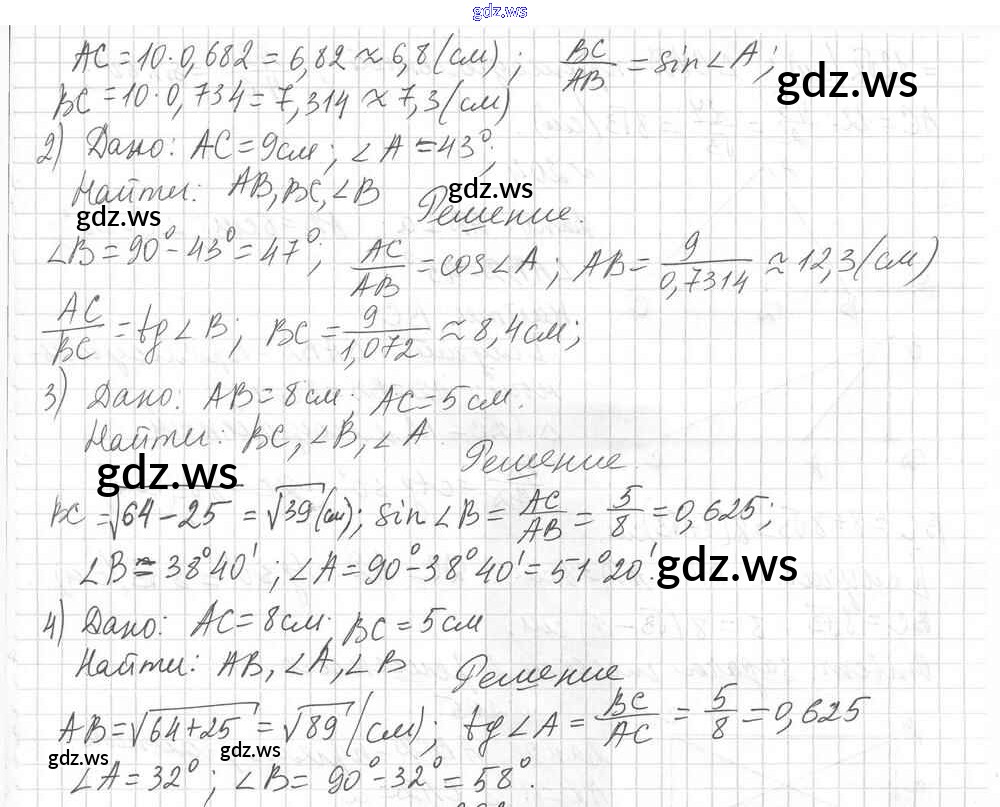 gdz.ws
AC = 10·0,682 = 6,82 ≈ 6,8 (см) ; BC/AB = sin∠A ;
gdz.ws
BC = 10·0,734 = 7,314 ≈ 7,3 (см)
2) Дано: AC = 9см ; ∠A = 43° ;
Найти: AB, BC, ∠B
gdz.ws
gdz.ws
Решение.
∠B = 90° - 43° = 47° ; AC/AB = cos∠A ; AB = 9/0,7314 ≈ 12,3 (см)
AC/BC = tg∠B ; BC = 9/1,072 ≈ 8,4см ;
3) Дано: AB = 8см ; AC = 5см.
Найти: BC, ∠B, ∠A.
Решение
gdz.ws
BC = √64 - 25 = √39 (см) ; sin∠B = AC/AB = 5/8 = 0,625 ;
∠B = 38°40' ; ∠A = 90° - 38°40' = 51°20'.
gdz.ws
4) Дано: AC = 8см ; BC = 5см
Найти: AB, ∠A, ∠B
Решение
AB = √64 + 25 = √89 (см) ; tg∠A = BC/AC = 5/8 = 0,625
gdz.ws
gdz.ws
∠A = 32° ; ∠B = 90° - 32° = 58°.